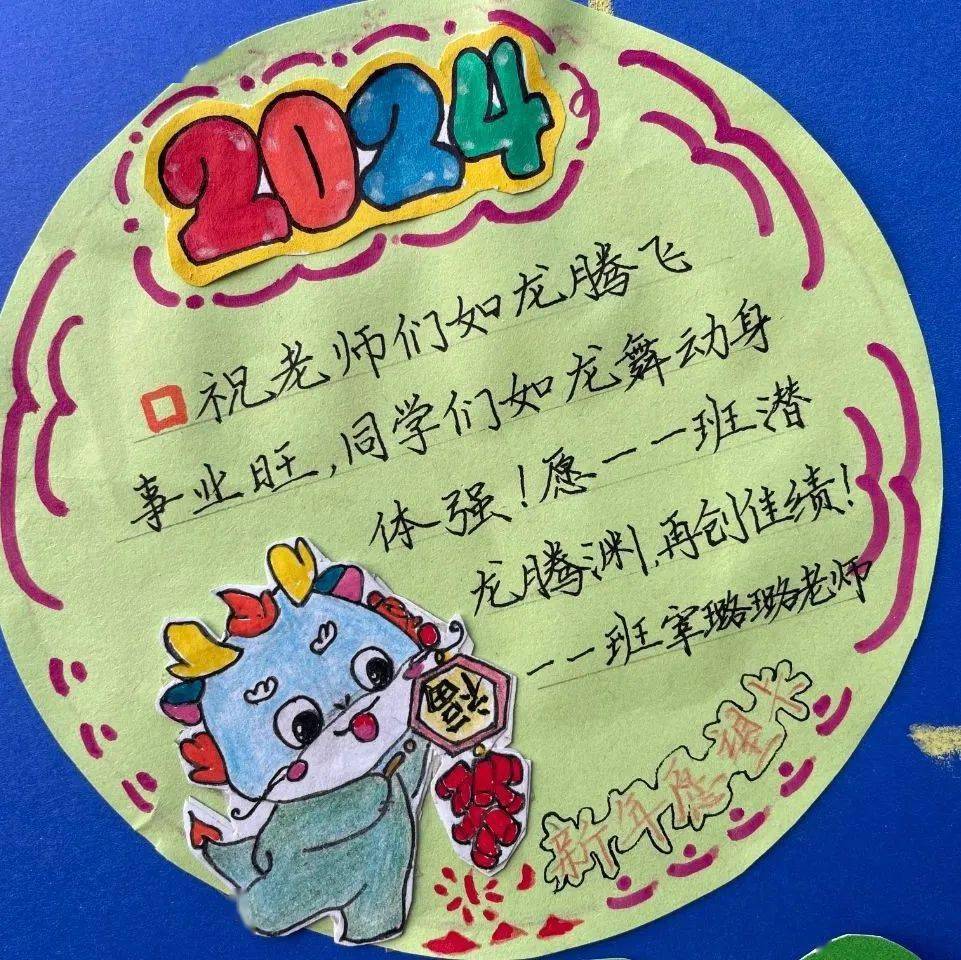 2024
祝老师们如龙腾飞
事业旺,同学们如龙舞动身
体强!愿一一班潜
龙腾渊,再创佳绩!
一一班璐璐老师
福
新年愿望